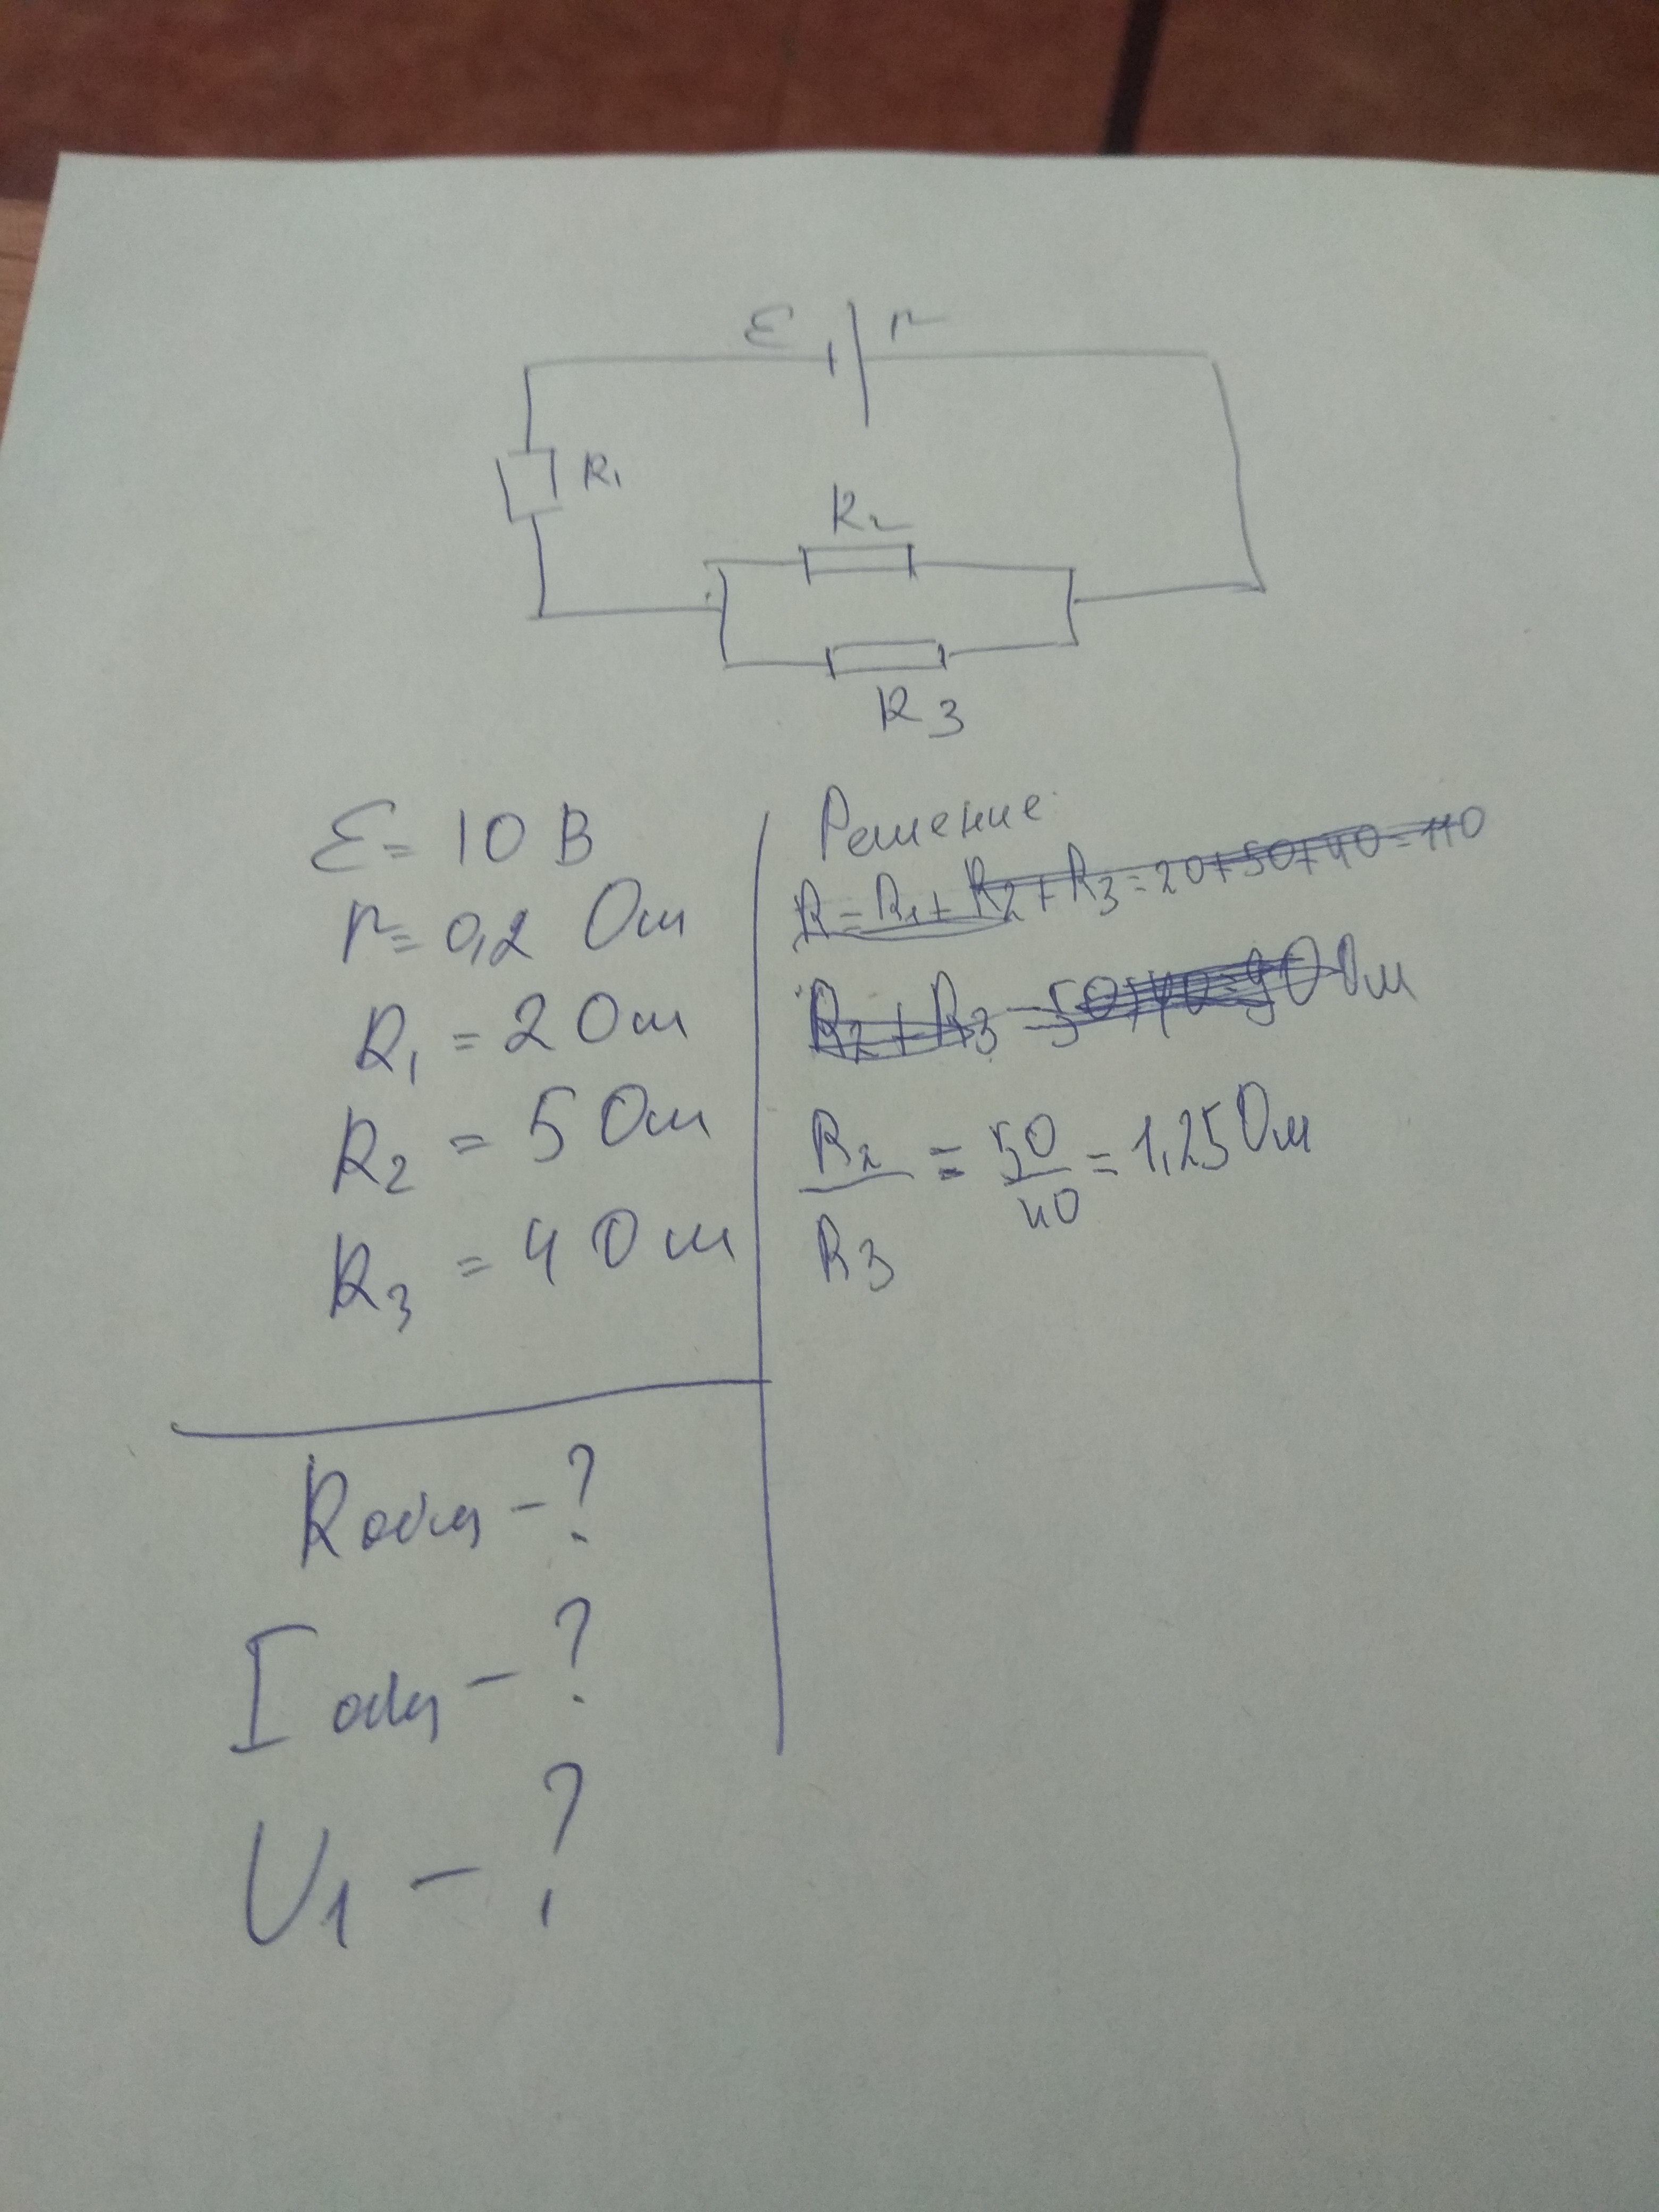 ε r
R₁
R₂
R₃
ε = 10 В
r = 0,2 Ом
R₁ = 2 Ом
R₂ = 5 Ом
R₃ = 4 Ом
Rобщ - ?
Iобщ - ?
U₁ - ?
Решение
R = R₁ + R₂ + R₃ = 20 + 50 + 40 = 110
R₂ + R₃ = 50 + 40 = 90 Ом
R₂ / R₃ = 50 / 40 = 1,25 Ом